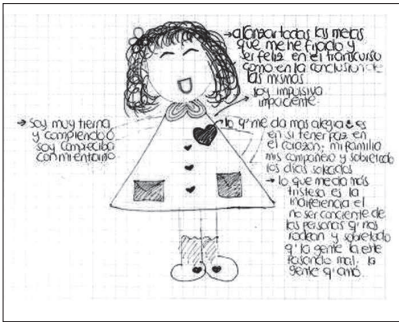 → alcanzar todas las metas
que me he fijado y
ser feliz en el transcurso
como en la conclusion de
las mismas.
→ soy impulsiva
impaciente.
→ soy muy tierna
y comprendo ó
soy compresiba
con mi entorno
→ lo q' me da mas alegria es
en si tener paz en
el corazón; mi familia
mis compañeros y sobretodo
los dias soleados
→ lo que me da más
tristesa es la
indiferencia el
no ser conciente de
las personas q' nos
rodean y sobretodo
q' la gente la este
pasando mal; la
gente q' amo.